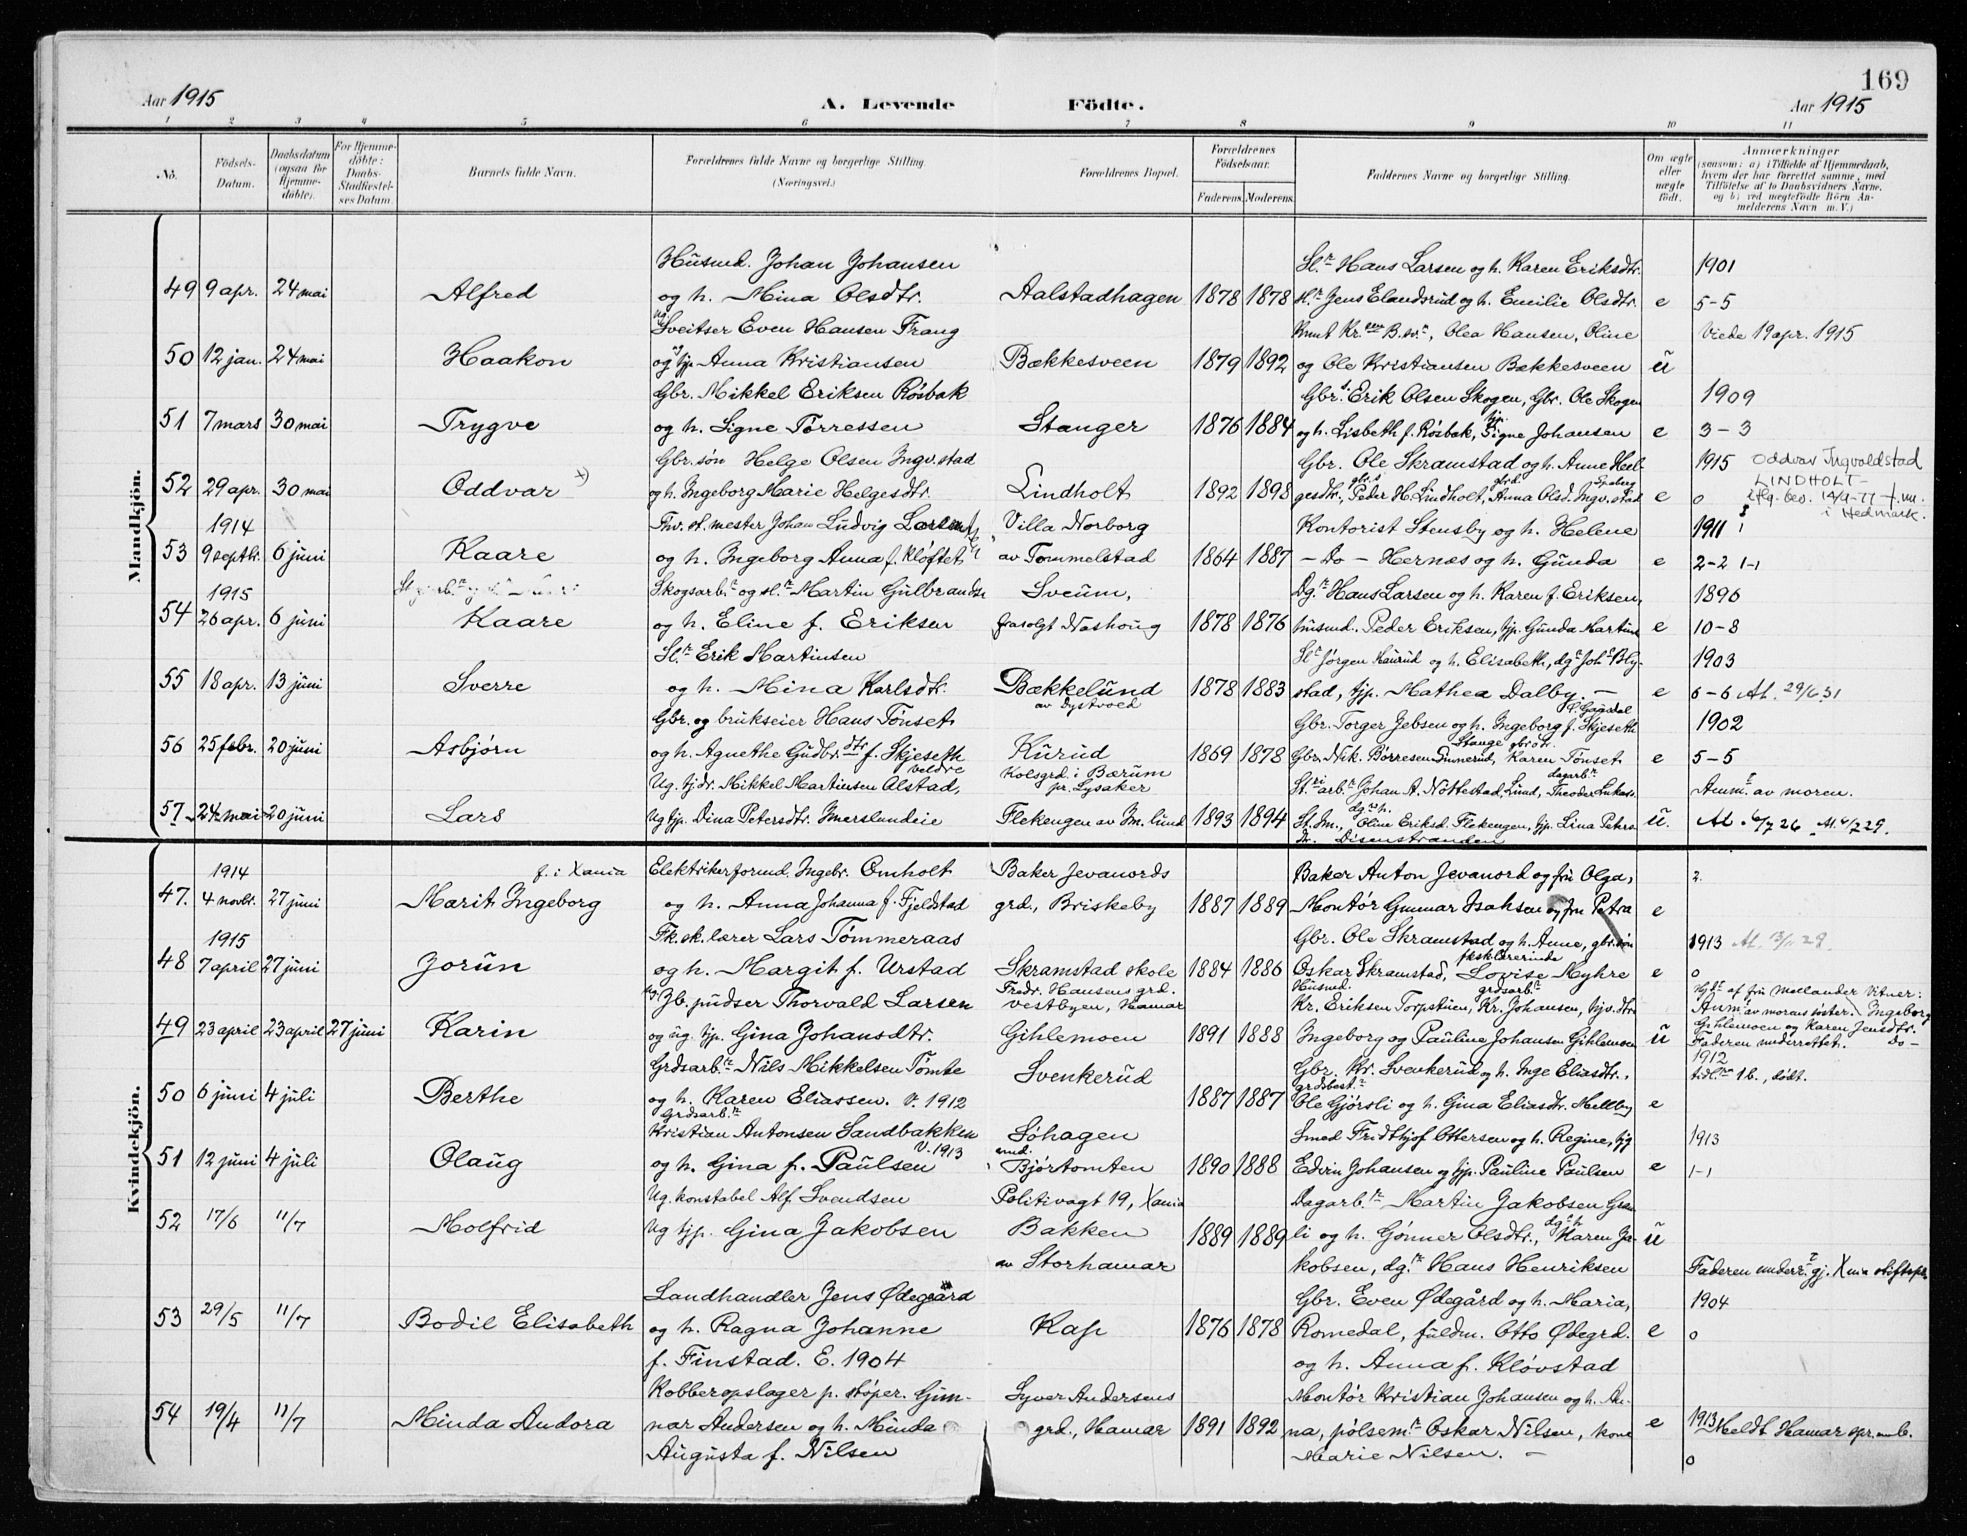 169
Aar 1915 A. Levende Födte. Aar 1915
1 2 3 4 5 6 7 8 9 10 11
No. Födsels-Datum. Daabsdatum (ogsaa for Hjemme-döbte). For Hjemme-döbte: Daabs-Stadfæstel-ses Datum. Barnets fulde Navn. Forældrenes fulde Navne og borgerlige Stilling. (Næringsvei.) Forældrenes Bopæl. Forældrenes Födselsaar. Faderens. Moderens. Faddernes Navne og borgerlige Stilling. Om ægte eller uægte födt. Anmærkninger (saasom: a) i Tilfælde af Hjemmedaab, hvem der har forrettet samme, med Tilföielse af to Daabsvidners Navne, og b) ved uægtefödte Börn Anmelderens Navn m. V.)
Mandkjön.
Husmd. Johan Johansen Sl.r Hans Larsen og h. Karen Eriksdtr. 1901
49 9 apr. 24 mai Alfred og h. Mina Olsdtr. Aalstadhagen 1878 1878 sl.r Jens Elandsrud og h. Emilie Olsdtr. e 5-5
ug. Sveitser Even Hansen Frang Knut Kr. sen B.sv.n, Olea Hansen, Oline Viede 19 apr. 1915
50 12 jan. 24 mai Haakon og tjp. Anna Kristiansen Bækkesveen 1879 1892 og Ole Kristiansen Bækkesveen ü
Gbr. Mikkel Eriksen Rösbak Gbr. Erik Olsen Skogen, Gbr. Ole Skogen 1909
51 7 mars 30 mai Trygve og h. Signe Torressen Stanger 1876 1884 og h. Lisbeth f. Rösbak, tjp. Signe Johansen e 3-3
Gbr. sön Helge Olsen Ingv.stad Gbr. Ole Skramstad og h. Anne Hel- 1915 Oddvar Ingvoldstad
52 29 apr. 30 mai Oddvar x) og h. Ingeborg Marie Helgesdtr. Lindholt 1892 1898 gesdtr., Peder H. Lindholt, Anna Olsd. Ingv.stad e 0 LINDHOLT- iflg. bev. 14/9-77 f.m. i Hedmark.
1914 Johan Ludvig Larsen Villa Norborg Kontorist Stensby og h. Helene 1911
53 9 septbr. 6 juni Kaare og h. Ingeborg Anna f. Kløftet av Tommelstad 1864 1887 - Do - Hernæs og h. Gunda e 2-2 1-1
1915 Skogsarb.r og sl.r Martin Gulbrandsen Sveum, Dg.r Hans Larsen og h. Karen f. Eriksen, 1896
54 26 apr. 6 juni Kaare og h. Eline f. Eriksen frasolgt Nashoug 1878 1876 husmd. Peder Eriksen, tjp. Gunda Martins e 10-8
Sl.r Erik Martinsen Sl.r Jörgen og h. Elisabeth, dg. Joh. Bly- 1903
55 18 apr. 13 juni Sverre og h. Mina Karlsdtr. Bækkelund av Dystvold 1878 1883 stad, tjp. Mathea Dalby. - e 6-6 At. 29/6 31
Gbr. og brukseier Hans Tönset Gbr. Torger Jebsen og h. Ingeborg f. Skjeseth 1902
56 25 febr. 20 juni Asbjørn og h. Agnethe Gudbr.dtr f. Skjeseth Kurud 1869 1878 Gbr. Nik. Börresen Finnerud, Stange gbrdtr. Karen Tönset e 5-5
Ug. tjdr. Mikkel Martinsen Alstad, Veldre Kolsgrd. i Bærum pr. Lysaker Johan A. Nöttestad, Lund, Theodor dagarb.r Anm. av moren.
57 24 mai 20 juni Lars Ug tjp. Dina Petersdtr. Imerslundeie Flekengen av Im.lund 1893 1894 St. Im., Oline Eriksd. Flekengen, tjp. Lina Peters- ü. At. 6/7 26 At. 4/7 29.
dtr. Disenstranden
Kvindekjön.
1914 f. i Xania Elektrikerformd. Ingebr. Omholt Baker Jevanords Baker Anton Jevanord og fru Olga, 2.
47. 4 novbr. 27 juni Marit Ingeborg og h. Anna Johanna f. Fjeldstad grd., Briskeby 1887 1889 Montör Gunnar Isaksen og fru Petra e
1915 Fk.sk.lærer Lars Tömmeraas Gbr. Ole Skramstad og h. Anne, gbr.sön 1913
48 7 april 27 juni Jorun og h. Margit f. Urstad Skramstad skole 1884 1886 Oskar Skramstad, fksklærerinde Lovise Myhre e 0
ug Jb. pudser Thorvald Larsen Fredr. Hansens grd. Vestbyen, Hamar Husmd. Kr. Eriksen Torpstuen, grdsarb.r Kr. Johansen, Hjd. af fru Mollander Vitner:
49 23 april 23 april 27 juni Karin og ug. tjp. Gina Johansdtr. Gihlemoen 1891 1888 Ingeborg og Pauline Johansen Gihlemoen ü Anm. av morens söster. Ingeborg Gihlemoen og Karen Jensdtr. Faderen underrettet. Do -
Grdsarb.r Nils Mikkelsen Tomte Svenkerud Gbr. Kr. Svenkerud og h. Inge Eliasdtr., 1912
50 6 juni 4 juli Berthe og h. Karen Eliassen. V. 1912 1887 1887 Ole Gjörsli og h. Gina Eliasdtr. Mellby e tidl. 1 b., dödt.
Grdsarb.r Kristian Antonsen Sandbakken Sóhagen Smed Fridthjof Ottersen og h. Regine, tjg 1913
51 12 juni 4 juli Olaug og h. Gina f. Paulsen V. 1913 Bjørtomten 1890 1888 Edvin Johansen og tjp. Pauline Paulsen e 1-1
Ug. konstabel Alf Svendsen Politivagt 19, Xania Dagarb.r Martin Jakobsen Gran-
52 17/6 11/7 Molfrid Ug tjp. Gina Jakobsen Bakken 1889 1889 li og h. Gönner Olsdtr., Karen Ja- ü
av Storhamar kobsen, dg.r Hans Henriksen Faderen underr. gj. Xania stiftspr.
Landhandler Jens Ødegaard Gbr. Even Ødegård og h. Maria, 1904
53 29/5 11/7 Bodil Elisabeth og h. Ragna Johanne Kap 1876 1878 Romedal, fuldm. Otto Ødegrd. e 0
f. Finstad. E. 1904 og h. Anna f. Klövstad
Kobberopslager p. stöper. Gun- Syver Andersens Montör Kristian Johansen og h. An-
54 19/4 11/7 Minda Andora nar Andersen og h. Minda grd., Hamar 1891 1892 na, pölsem.r Oskar Nilsen, kone e 1913 Meldt Hamar spr. emb.
Augusta f. Nilsen Marie Nilsen. - 0